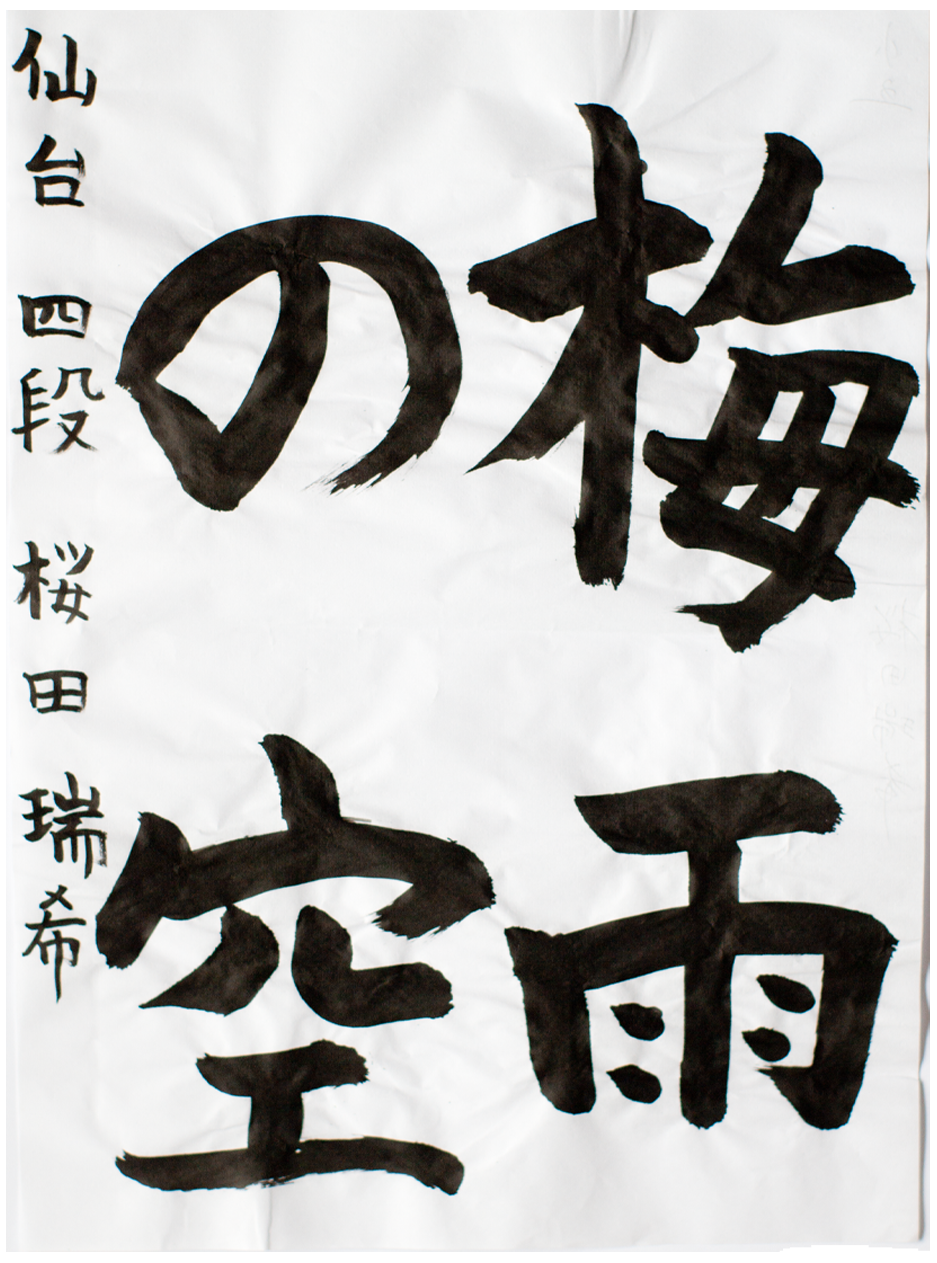 梅雨
の空
仙台 四段 桜田 瑞希